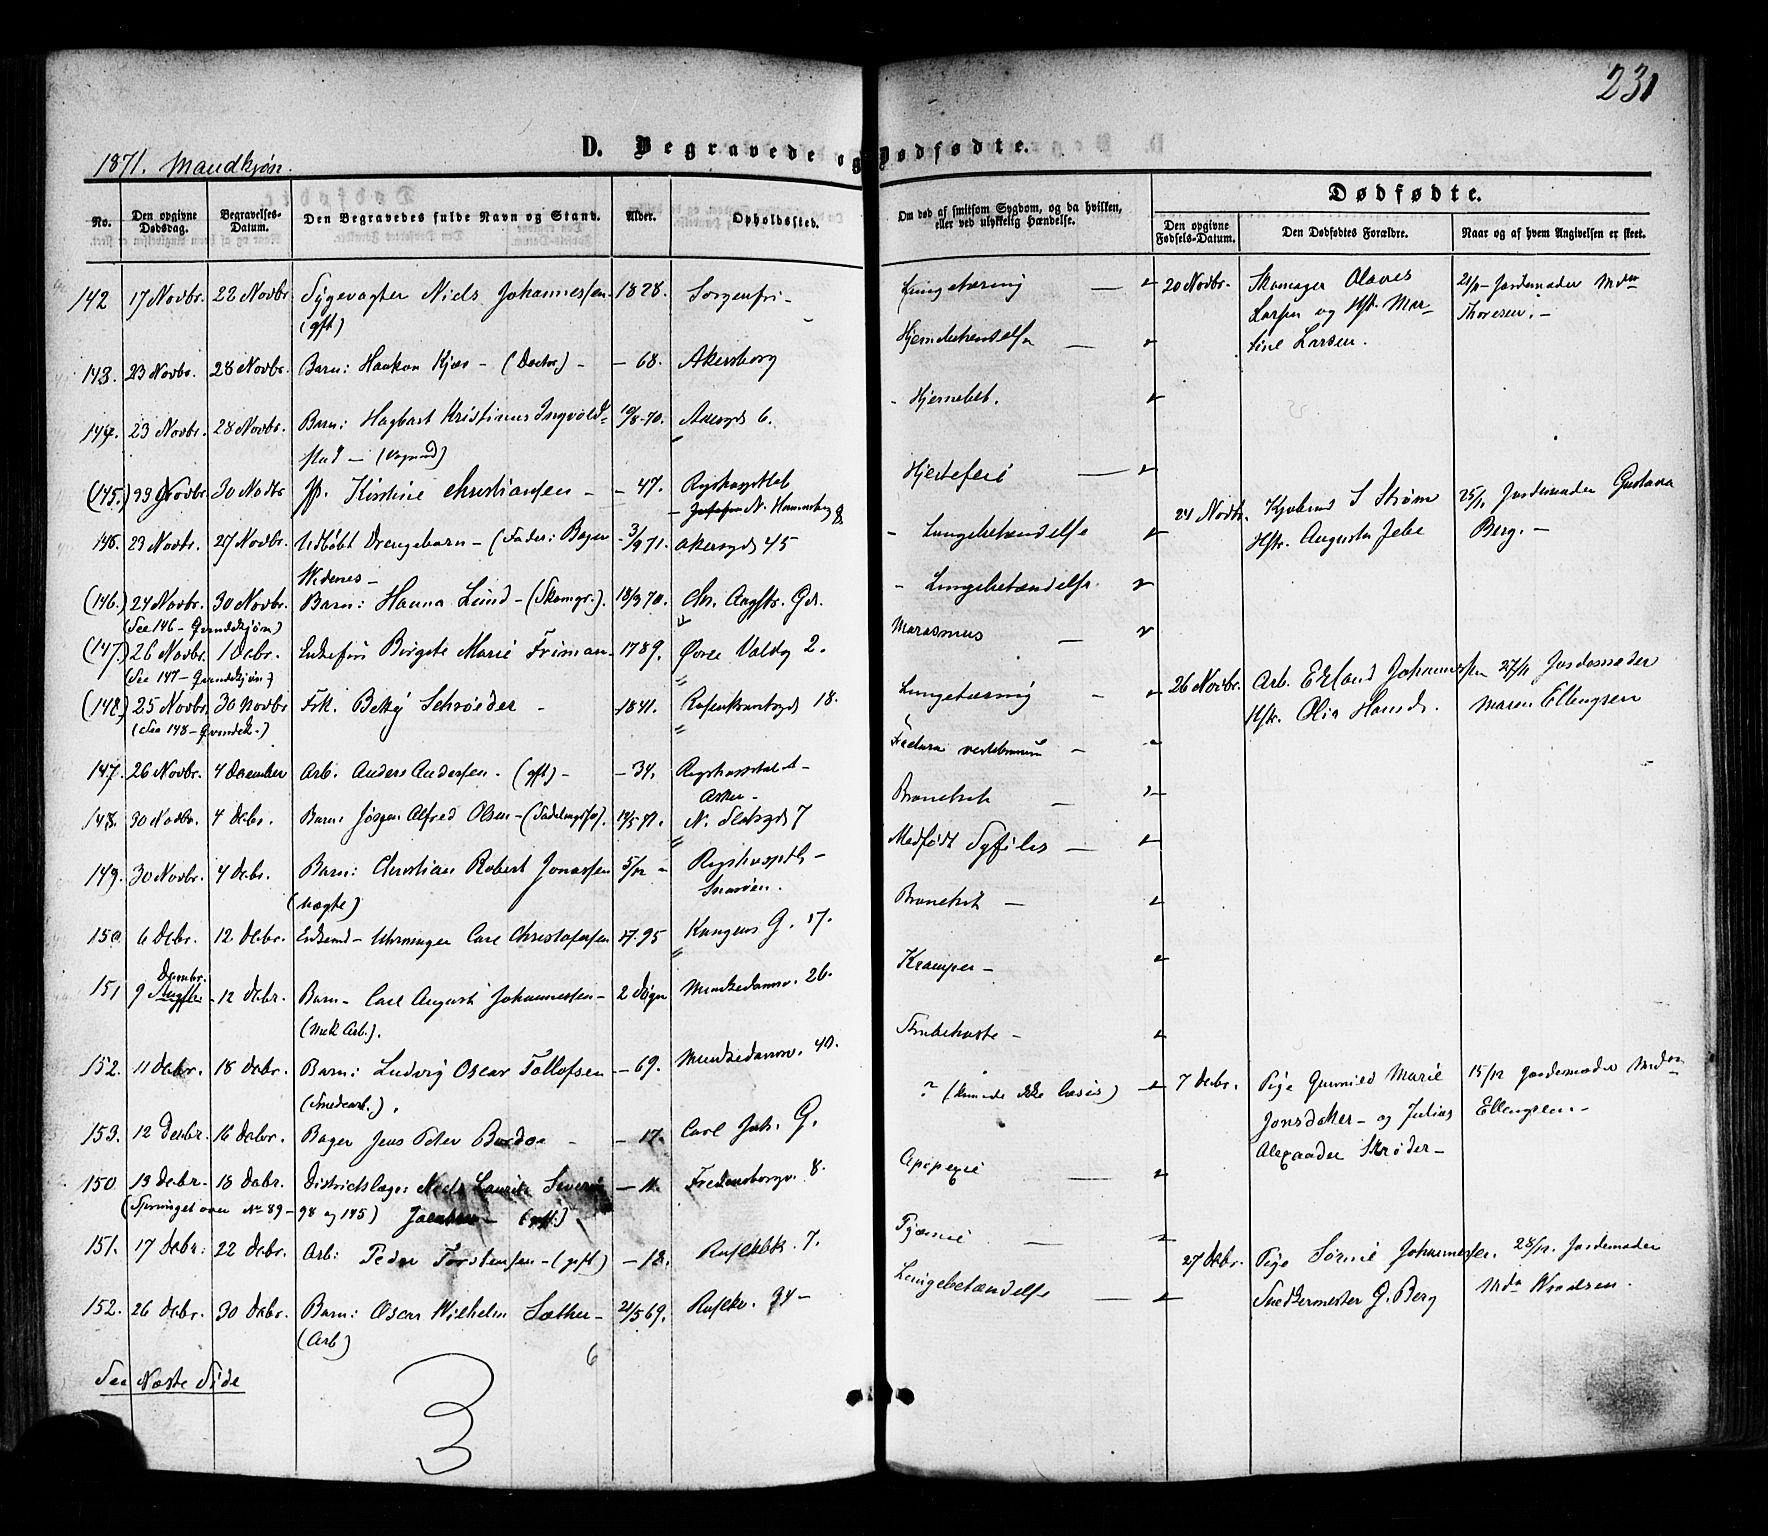 231
D. Begravede og Dødfødte.
1871. Mandkjøn.
Dødfødte.
No. Den opgivne Dødsdag. Begravelses-Datum. Den Begravedes fulde Navn og Stand. Alder. Opholdssted. Om død af smitsom Sygdom, og da hvilken, eller ved ulykkelig Hændelse. Den opgivne Fødsels-Datum. Den Dødfødtes Forældre. Naar og af hvem Angivelsen er skeet.
142 17 Novbr. 22 Novbr. Sygevogter Niels Johannessen 1828. Sorgenfri - Lungetæring — 20 Novbr. Skomager Olaves 21/11 Jordemoder Mdm
(gft) Larsen og Hst. Mar-
Thoresen. -
tine Larsen.
143. 23 Novbr. 28 Novbr. Barn: Haakon Kjær - (Doctor) - - 68. Akersborg Hjernebetændelse —
144. 23 Novbr. 28 Novbr. Barn: Hagbart Kristinus Ingvald- 10/8-70. Akersgd 6. - Hjernebet.
stad -
(145.) 23 Novbr. 30 Novbr. Jfr. Kirstine Christiansen - - 47. Rigshospitalet Hjertefeil —
N. Hammersborg 8
24 Novbr. Strøm 25/11 Jordemoder Gustava
Hstr. Augusta Berg. -
146. 23 Novbr. 27 Novbr. Udøbt Drengebarn - (Fader: Bager 3/9 71. Akersgd 45 - Lungebetændelse
Widenes -
(146.) 24 Novbr. 30 Novbr. Barn: Hanna Lund - (Skomgr.). 18/3 70. Chr. Augsts. Gd. - Lungebetændelse.
(See 146 - Qvindekjøn)
(147.) 26 Novbr. 1 Debr. Enkefru Birgete Marie Friman - 1789. Øvre Voldg 2. Marasmus —
(See 147 - Qvindekjøn)
(148.) 25 Novbr. 30 Novbr. Frk. Betzy Schrøeder - 1841. Rosenkrantzgd 18. Lungetæring - 26 Novbr. Arb. Erland Johannessen 27/11 Jordemoder
(See 148 - Qvindek.) Hstr. Olia Hansd. Maren Ellengsen
147. 26 Novbr. 4 December Arb. Anders Andersen. (gft) - - 34. Rigshospitalet - Fractura vertebrarum —
Asker -
148. 30 Novbr. 4 Debr. Barn: Jørgen Alfred Olsen - 14/5 71. N. Slotsgd 7 Bronchit —
149. 30 Novbr. 4 Debr. Barn: Christian Robert Jonassen 5/12 - Rigshospitl - Medfødt Syfilis —
(uægte) Snarøen.
150 6 Debr. 12 Debr. Enkemd - Uhrmager Carl Christofersen 1795 Kongens G. 17. Bronchit —
151 9 Decmbr. - 12 Debr. Barn - Carl August Johannessen - 2 Døgn Munkedamsv. 26. Kramper -
(Mek Arb.).
152. 11 Debr. 18 Debr. Barn: Ludvig Oscar Tollofsen - 69. Munkedamsv. 40. Strubehoste -
(Smedearb.).
153. 12 Decbr. 16 Debr. Bager Jens Peter - - 17. Carl Joh. G. ? (kunde ikke læses) 7 Debr. Pige Gunnild Marie 15/12 Jordemoder Mdm
Jonsdatter - og Julius Ellengsen -
Alexander Skrøder -
150 13 Debr. 18 Debr. Districtslæge: Niels Lauritz - 11. Fredensborgv. 8. Apoplexie —
(Springet over No 89 - 98 og 145) - (gft.)
151. 17 Debr. 22 Debr. Arb: Peder Torstensen - (gft) - 18. Ruselkbk. 7. —
27 Debr. Pige Sørine Johannessen. 28/12. Jordemoder
Snedkermester G. Berg Mda
152. 26 Debr. 30 Debr. Barn: Oscar Wilhelm Sæther - 21/5 69. Ruselkv. 34 - Lungebetændelse —
(Arb)
6
See Næste Side
3